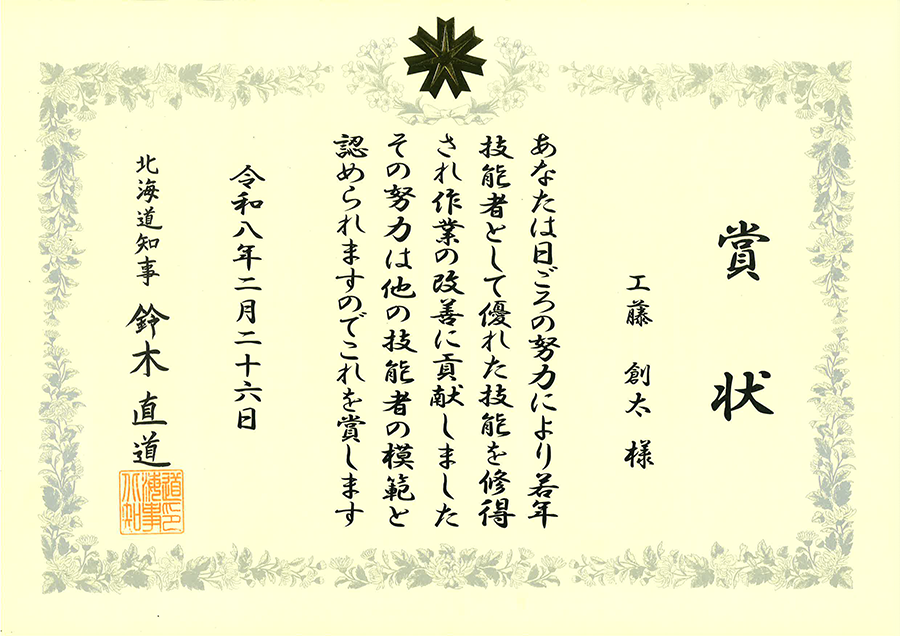 賞状
工藤 創太 様
あなたは日ごろの努力により若年
技能者として優れた技能を修得
され作業の改善に貢献しました
その努力は他の技能者の模範と
認められますのでこれを賞します
令和八年二月二十六日
北海道知事 鈴木直道